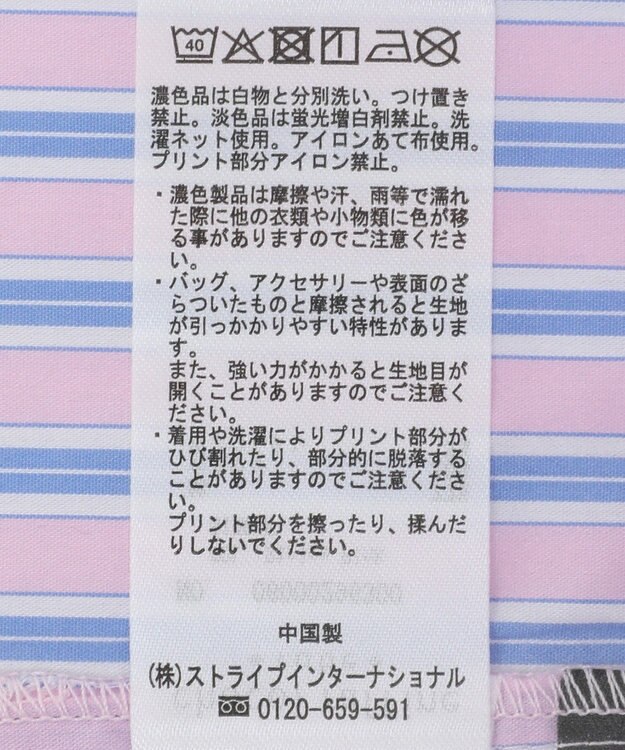 40
濃色品は白物と分別洗い。つけ置き
禁止。淡色品は蛍光増白剤禁止。洗
濯ネット使用。アイロンあて布使用。
プリント部分アイロン禁止。
・濃色製品は摩擦や汗、雨等で濡れ
た際に他の衣類や小物類に色が移
る事がありますのでご注意くださ
い。
・バッグ、アクセサリーや表面のざ
らついたものと摩擦されると生地
が引っかかりやすい特性がありま
す。
また、強い力がかかると生地目が
開くことがありますのでご注意く
ださい。
・着用や洗濯によりプリント部分が
ひび割れたり、部分的に脱落する
ことがありますのでご注意くださ
い。
プリント部分を擦ったり、揉んだ
りしないでください。
中国製
(株)ストライプインターナショナル
0120-659-591